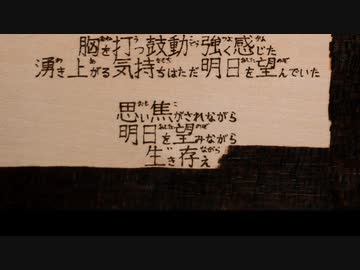 胸を打つ鼓動が強く感じた
湧き上がる気持ちはただ明日を望んでいた
思い焦がされながら
明日を望みながら
生き存え